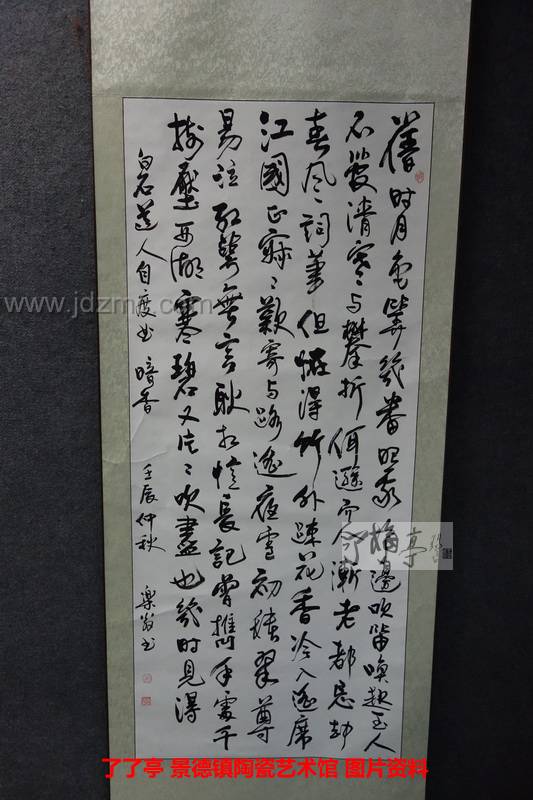 舊時月色算幾番照我梅邊吹笛喚起玉人
不管清寒與攀折何遜而今漸老都忘却
春風詞筆但怪得竹外疎花香冷入瑤席
江國正寂〻歎寄與路遙夜雪初積翠尊
易泣紅萼無言耿相憶長記曾攜手處千
樹壓西湖寒碧又片〻吹盡也幾時見得
白石道人自度曲 暗香 壬辰仲秋 樂翁书
了了亭 景德镇陶瓷艺术馆 图片资料